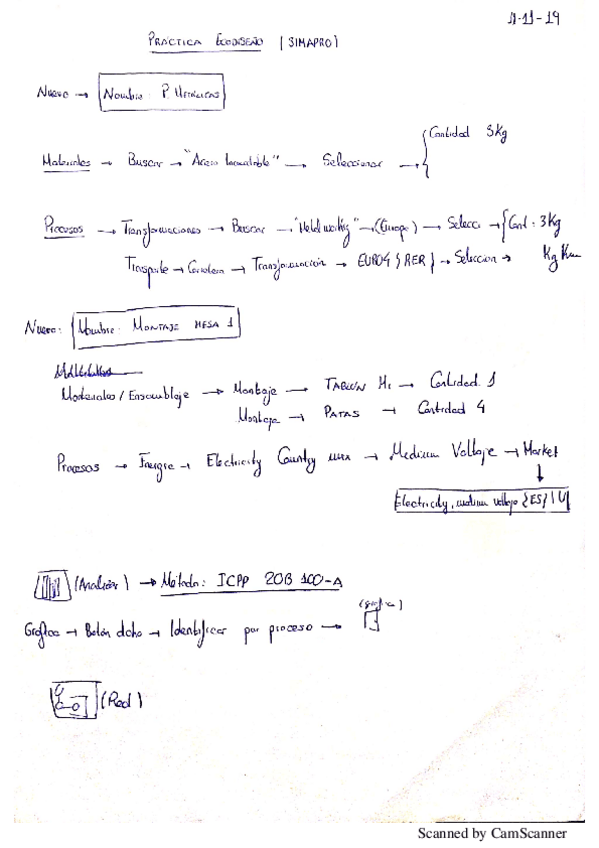 11-11-19
PRÁCTICA ECODISEÑO (SIMAPRO)
Nuevo → Nombre: P. METÁLICAS
Cantidad 3Kg
Materiales → Buscar → "Acero Inoxidable" → Seleccionar →
Procesos → Transformaciones → Buscar → "Metal working" → (Europe) → Selecc → Cant: 3Kg
Transporte → Carretera → Transformación → EURO4 {RER} → Seleccion → Kg Km
Nuevo: Nombre: MONTAJE MESA 1
Materiales
Materiales/Ensamblaje → Montaje → TABLÓN M1 → Cantidad 1
Montaje → PATAS → Cantidad 4
Procesos → Energía → Electricity Country mix → Medium Voltaje → Market
Electricity, medium voltage {ES} | U
(Analizar) → Método: ICPP 2013 100-A
(gráfica)
Gráfica → Botón dcho → Identificar por proceso →
(Red)
Scanned by CamScanner